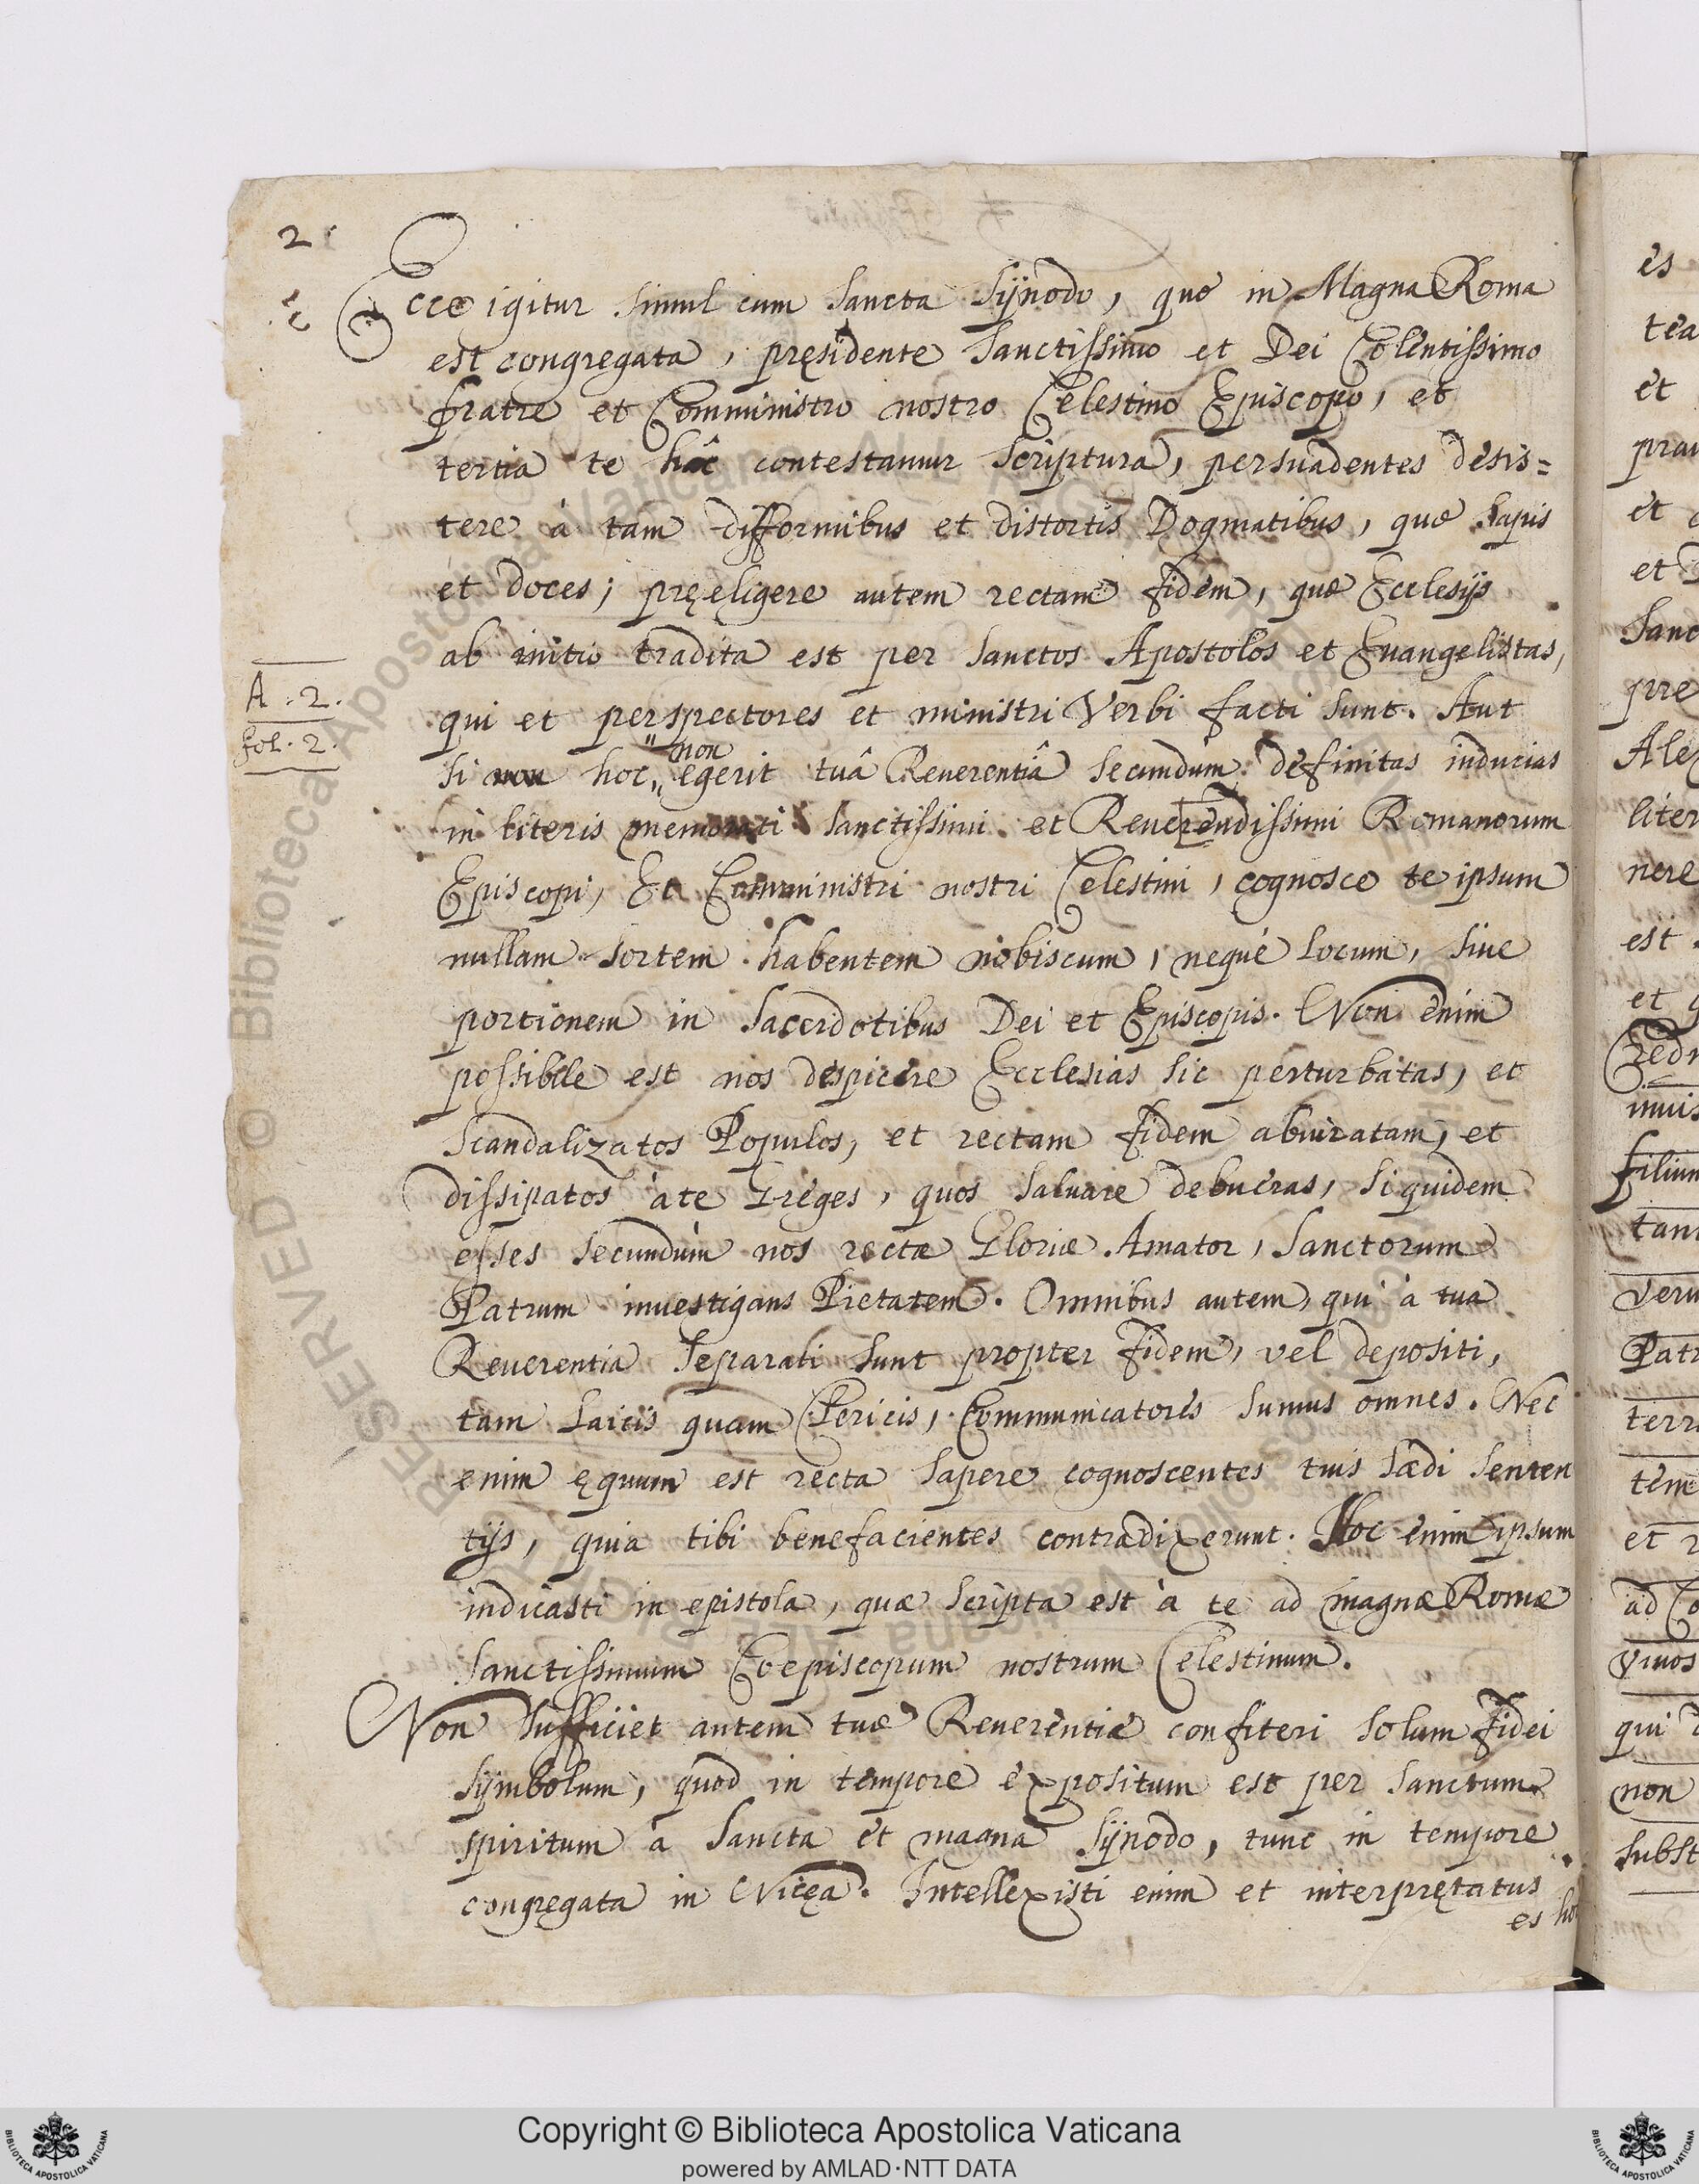 2
Ecce igitur simul cum Sancta Sÿnodo, quæ in Magna Roma
est congregata, pręsidente Sanctissimo et Dei Colentissimo
fratre et Comministro nostro Celestino Episcopo, et
tertia te hâc contestamur Scriptura, persuadentes desis=
tere à tam difformibus et distortis Dogmatibus, quæ sapis
et doces; pręeligere autem rectam fidem, quæ Ecclesÿs
ab initio tradita est per Sanctos Apostolos et Euangelistas,
A . 2.
fol. 2.
qui et perspectores et ministri Verbi facti sunt. Aut
non
si non hoc,, egerit tuâ Reuerentiâ secundùm definitas inducias
in literis memorati Sanctissimi et Reuerendissimi Romanorum
Episcopi, Et Comministri nostri Celestini, cognosce te ipsum
nullam sortem habentem nobiscum, neque locum, siue
portionem in Sacerdotibus Dei et Episcopis. Non enim
possibile est nos despicere Ecclesias sic perturbatas, et
Scandalizatos Populos, et rectam fidem abiuratam, et
dissipatos à te Greges, quos saluare debueras, si quidem
esses secundùm nos rectæ Gloriæ Amator, Sanctorum
Patrum inuestigans Pietatem. Omnibus autem, qui à tua
Reuerentia Separati sunt propter fidem, vel depositi,
tam Laicis quam Clericis, Communicatores sumus omnes. Nec
enim ęquum est recta sapere cognoscentes tuis lædi senten
tÿs, quia tibi benefacientes contradixerunt. Hoc enim ipsum
indicasti in epistola, quæ scripta est à te ad magnæ Romæ
Sanctissimum Coepiscopum nostrum Celestinum.
Non sufficiet autem tuæ Reuerentiæ confiteri solum fidei
Sÿmbolum, quod in tempore expositum est per Sanctum
spiritum à Sancta et magna Sÿnodo, tunc in tempore
congregata in Nicęa. Intellexisti enim et interpretatus
es ho
es
tea
et
prau
et
et
Sanc
pre
Alex
liter
nere
est.
et q
Cred
inuis
filium
tant
veru
Patr
terra
tem
et
ad Co
viuos
qui
non
subst
Copyright © Biblioteca Apostolica Vaticana
powered by AMLAD·NTT DATA